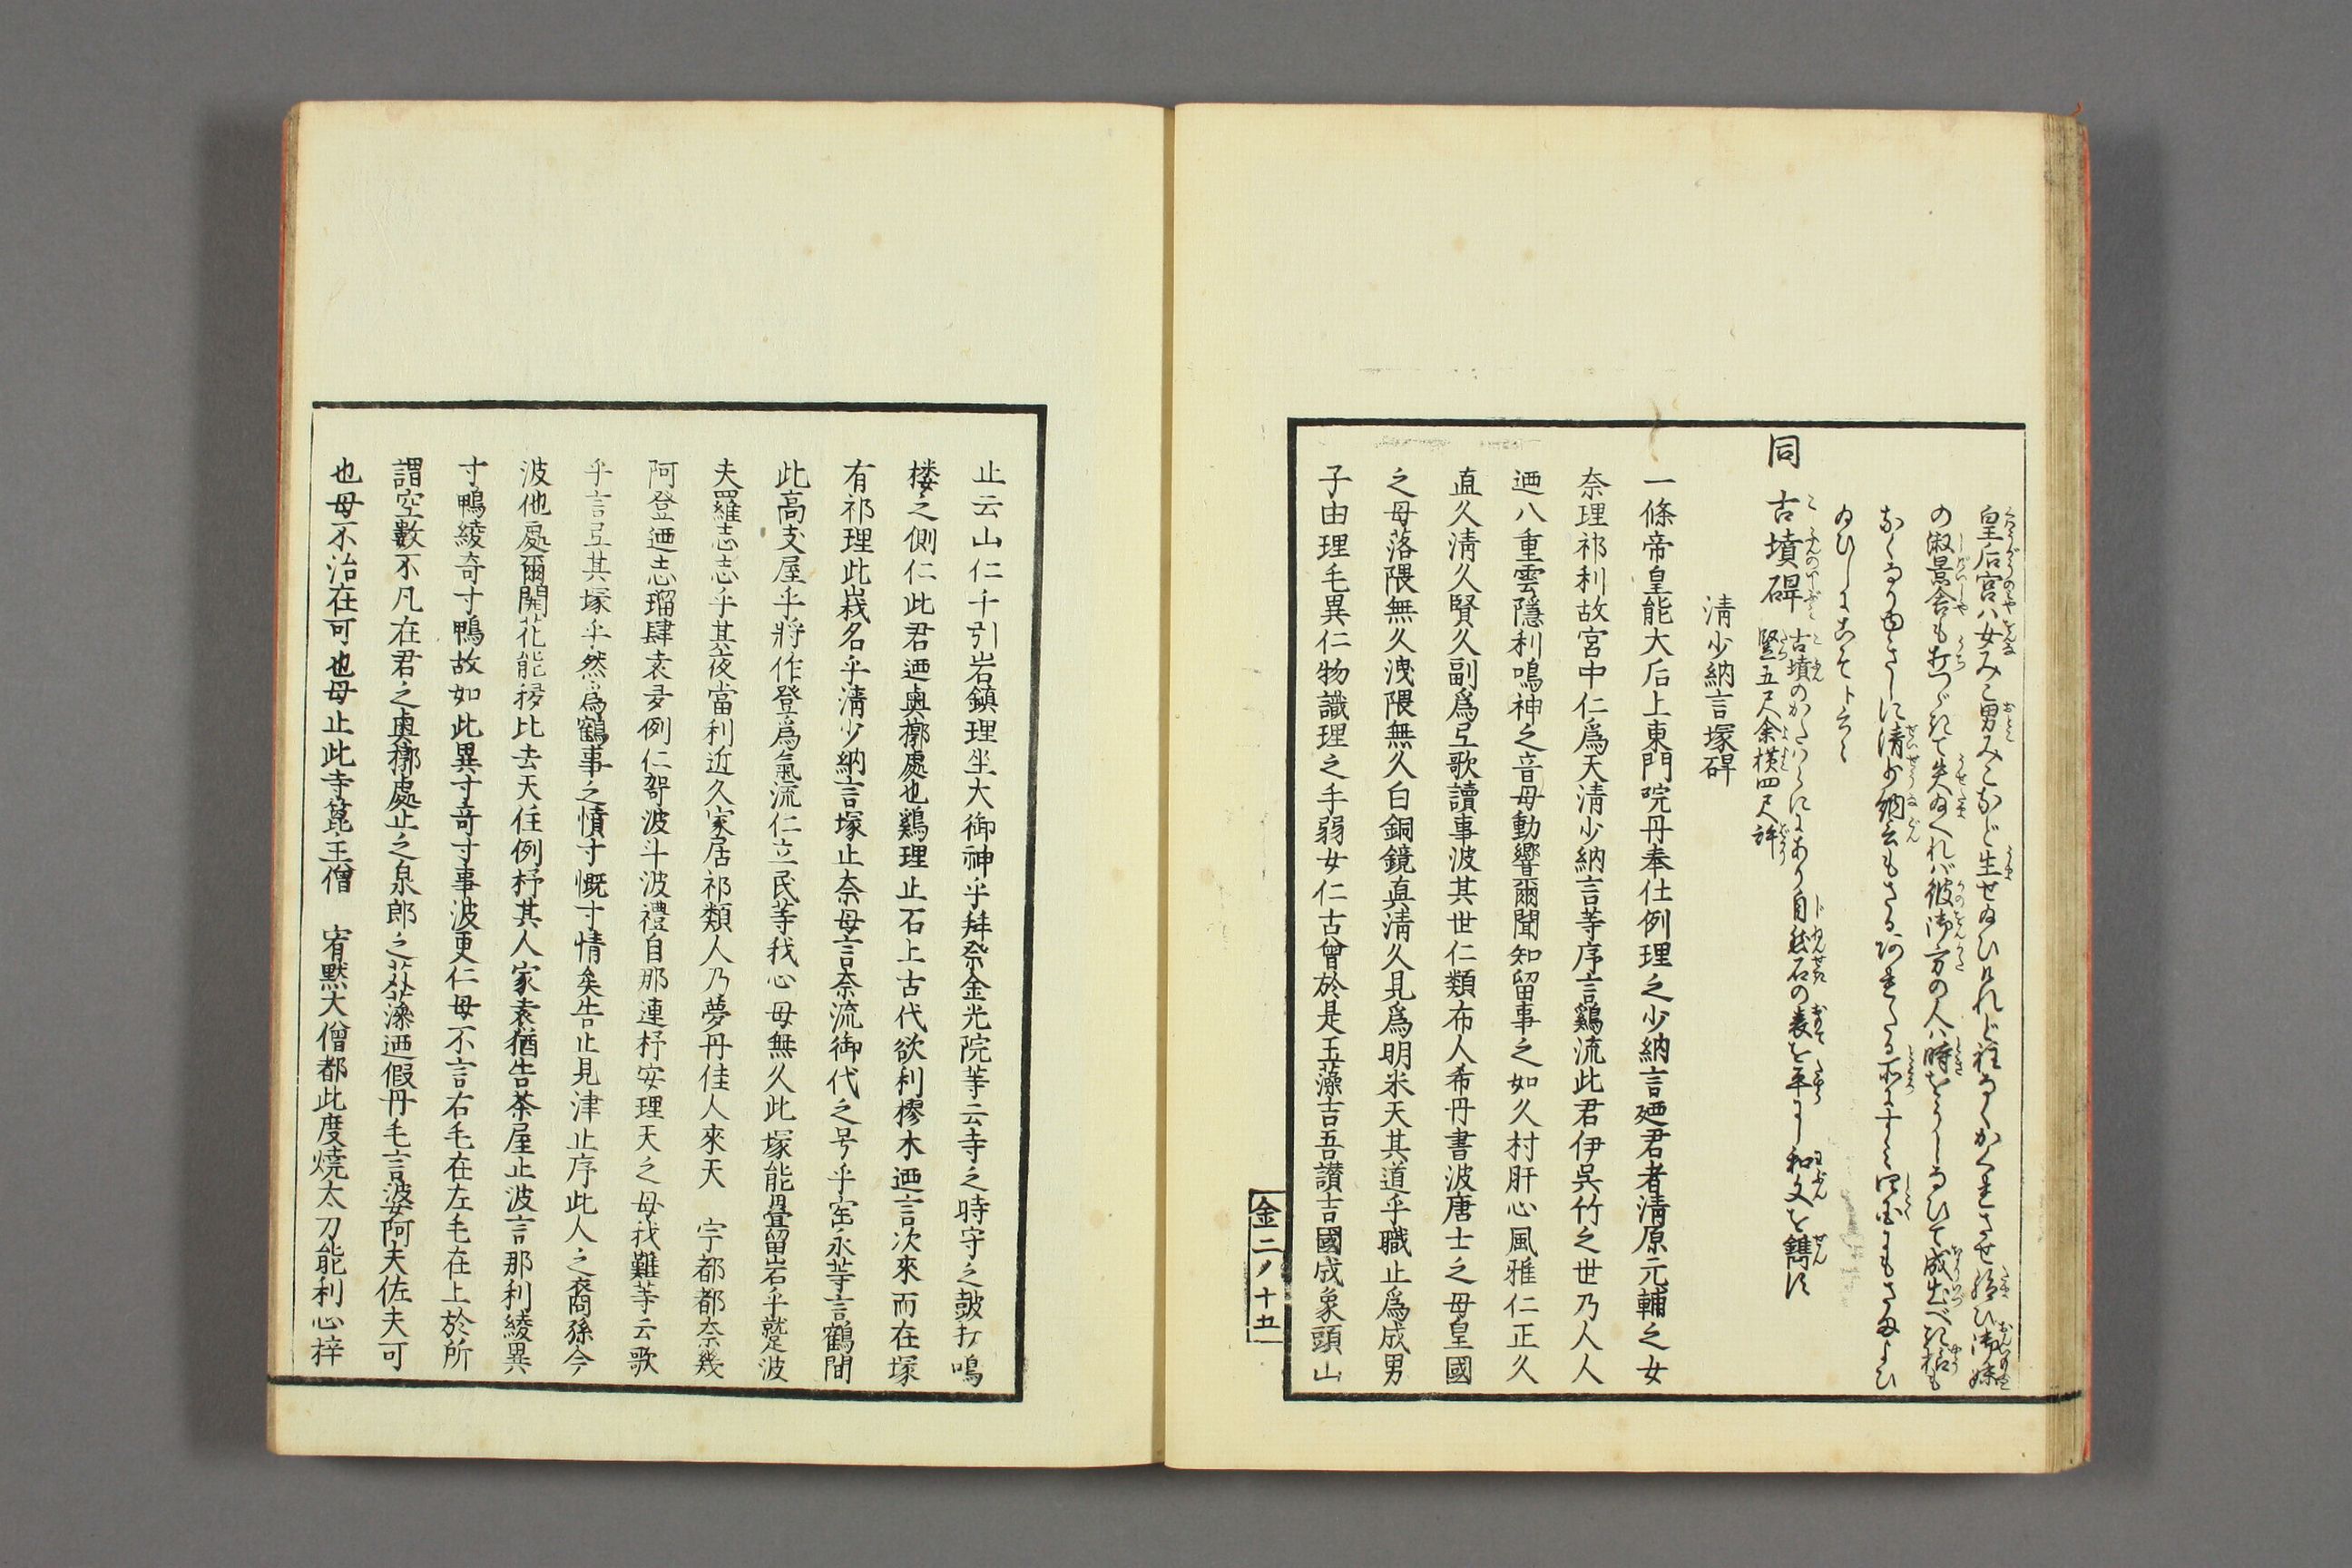 皇后宮ハ女みこ男みこなど生せ給ひけれど程なくかくれさせ給ひ御妹
の淑景舎も打つゞきて失給へれバ彼御方の人ハ時をうしなひて成出べき榀も
なくなりゆきしに清少納言もさる
給ひしにこそト云々
同 古墳碑 古墳のかたハらにあり自然石の表を平にし和文を鐫に
竪五尺余横四尺許
清少納言塚碑
一條帝皇能大后上東門院丹奉仕例理之少納言廼君者清原元輔之女
奈理祁利故宮中仁爲天清少納言等序言鷄流此君伊呉竹之世乃人人
廼八重雲隱利鳴神之音母動響爾聞知留事之如久村肝心風雅仁正久
直久清久賢久副爲弖歌讀事波其世仁類布人希丹書波唐士之母皇國
之母落隈無久洩隈無久白銅鏡眞清久見爲明米天其道乎職止爲成男
子由理毛異仁物識理之手弱女仁古曾於是玉藻吉吾讃吉國成象頭山
金二ノ十五
止云山仁千引岩鎮理坐大御神乎拜祭金光院等云寺之時守之皷打鳴
楼之側仁此君廼奥槨處也鷄理止石上古代欲利樛木廼言次來而在塚
有祁理此峩名乎清少納言塚止奈母言奈流御代之号乎寛永等言鶴間
此高支屋乎將作登爲氣流仁立民等我心母無久此塚能疊留岩乎蹵波
夫羅志志乎其夜當利近久家居祁類人乃夢丹佳人來天 宇都都奈幾
阿登廼志瑠肆袁多例仁哿波斗波禮自那連杼安理天之母我難等云歌
乎言弖其塚乎然爲鶴事之憤寸慨寸情矣告止見津止序此人之裔孫今
波他處爾開花能移比去天任例杼其人家袁猶告茶屋止波言那利綾異
寸鴨綾奇寸鴨故如此異寸竒寸事波更仁母不言右毛在左毛在上於所
謂空數不凡在君之奥槨處止之泉郎之苅藻廼假丹毛言波婆阿夫佐夫可
也母不治在可也母止此寺箆主僧 宥黙大僧都此度燒太刀能利心梓